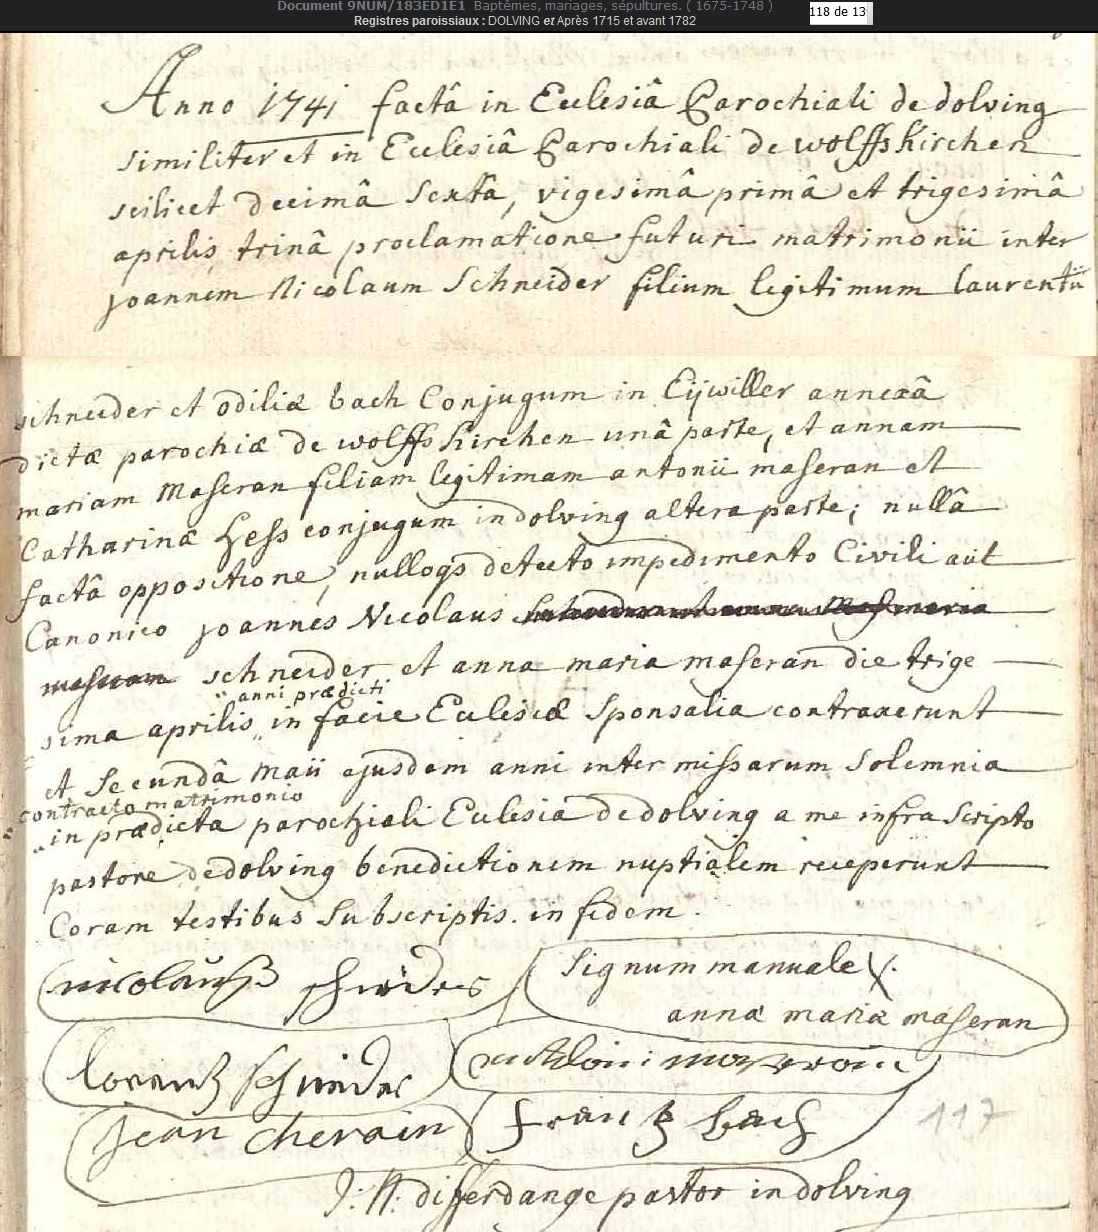 Document 9NUM/183ED1E1 Baptêmes, mariages, sépultures. ( 1675-1748 )
118 de 13
Registres paroissiaux : DOLVING et Après 1715 et avant 1782
Anno 1741 factâ in Ecclesiâ Parochiali de dolving
similiter et in Ecclesiâ Parochiali de wolffskirchen
scilicet decimâ sextâ, vigesimâ primâ et trigesimâ
aprilis, trinâ proclamatione futuri matrimonii inter
joannem Nicolaum Schneider filium legitimum laurentii
schneider et odiliæ bach Conjugum in Eijwiller annexâ
dictæ parochiæ de wolffskirchen unâ parte, et annam
mariam Maseran filiam legitimam antonii maseran et
Catharinæ Hess conjugum in dolving altera parte; nullâ
factâ oppositione, nulloqs detecto impedimento Civili aut
Canonico joannes Nicolaus
schneider et anna maria maseran die trige
anni prædicti
sima aprilis in facie Ecclesiæ Sponsalia contraxerunt
et Secundâ maii ejusdem anni inter missarum Solemnia
contracto matrimonio
in prædicta parochiali Ecclesia de dolving a me infra Scripto
pastore de dolving benedictionem nuptialem receperunt
Coram testibus Subscriptis. in fidem.
nicolauß schneider
Signum manuale X.
annæ mariæ maseran
lorentz schneider
antoni maseran
jean cherain
frantz bach
117
J. N. differdange pastor in dolving